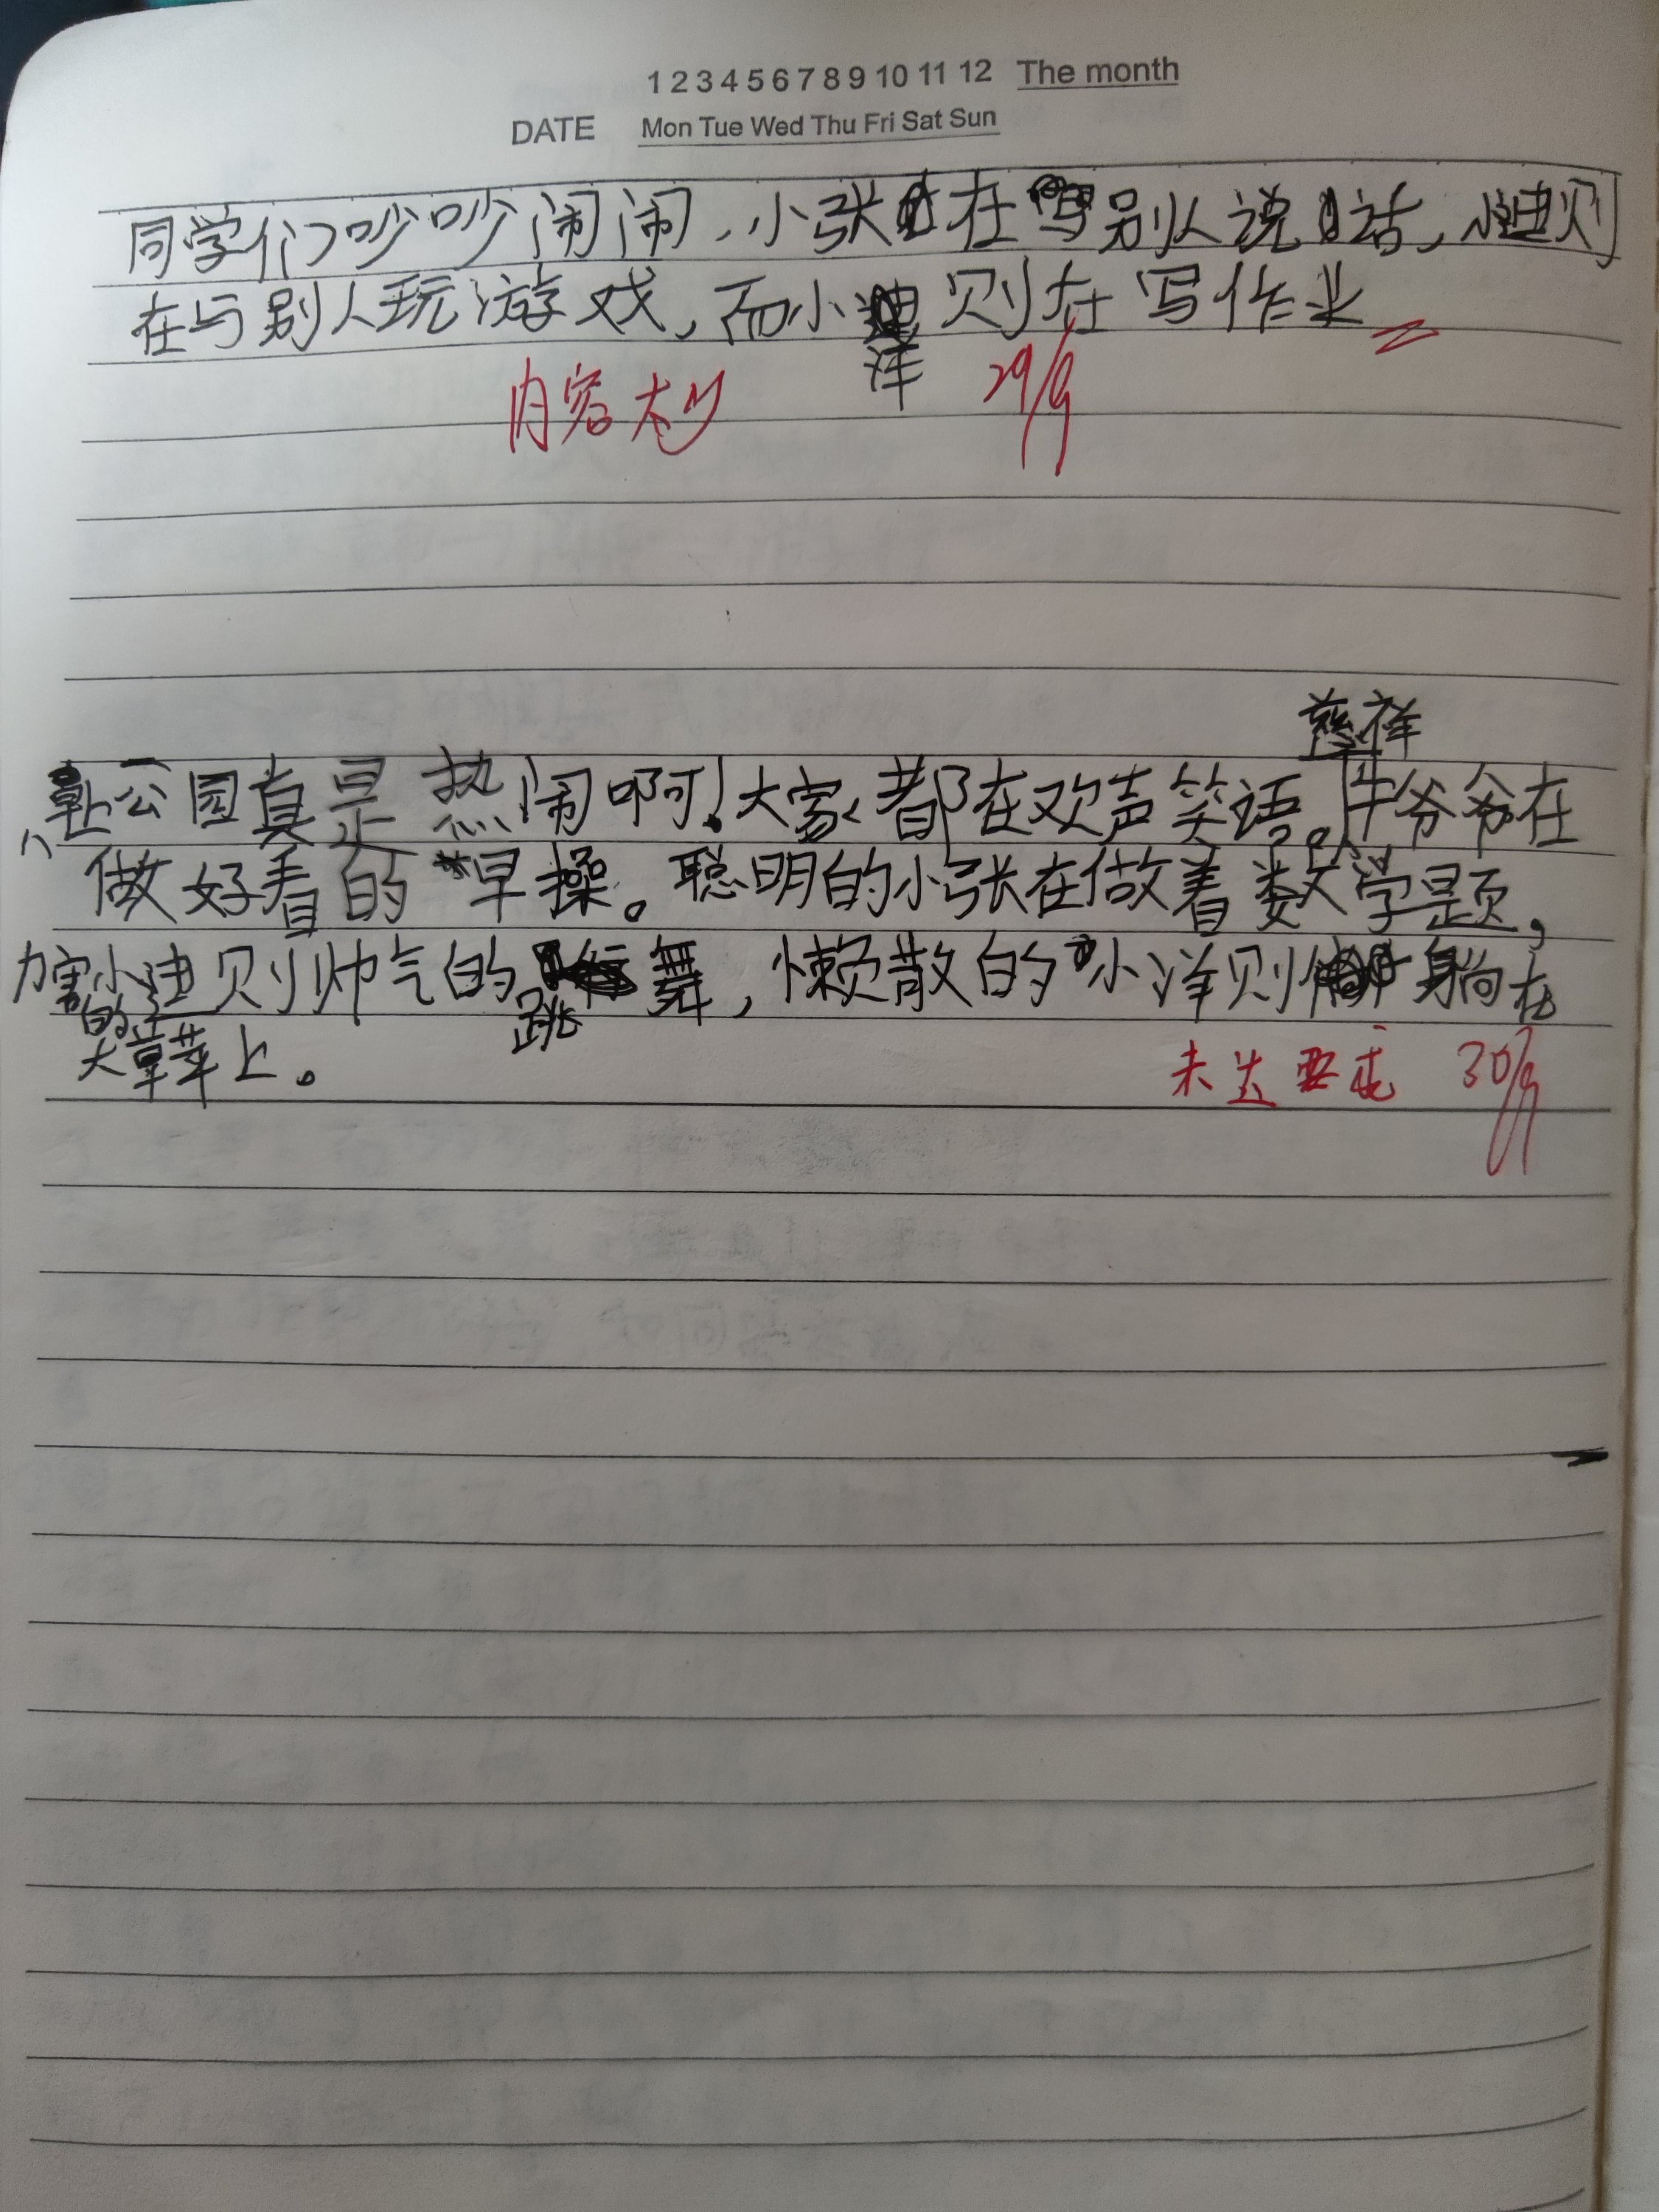 1 2 3 4 5 6 7 8 9 10 11 12 The month
DATE Mon Tue Wed Thu Fri Sat Sun
同学们吵吵闹闹,小张在与别人说话,小迪则
在与别人玩游戏,而小洋则在写作业
内容太少 29/9
慈祥
公园真是热闹啊!大家都在欢声笑语。牛爷爷在
做好看的早操。聪明的小张在做着数学题,
小迪则帅气的跳舞,懒散的小洋则躺在
大草苹上。
未达要求 30/9